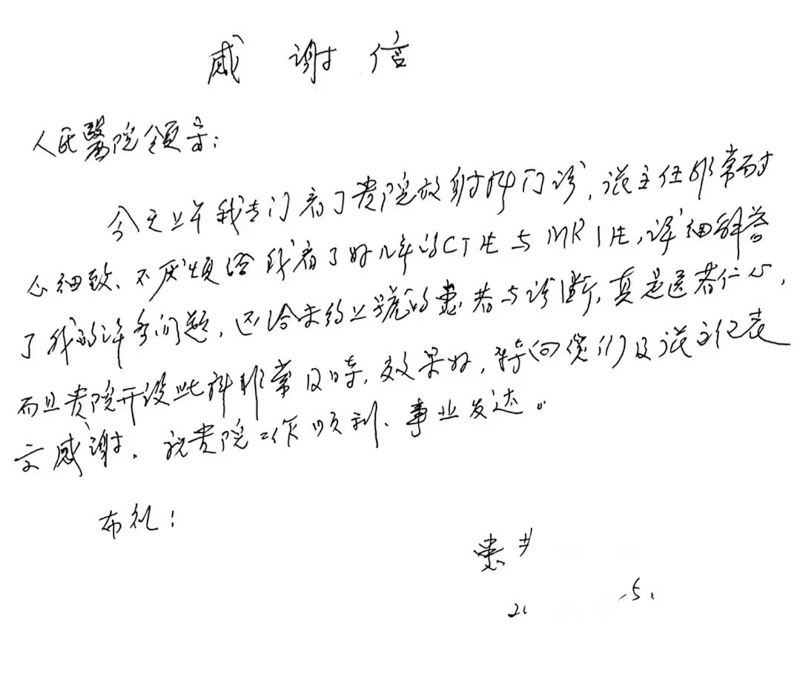 感谢信
人民醫院领导：
今天上午我专门看了贵院放射科门诊，该主任非常耐
心细致、不厌烦给我看了好几年的CT片与MRI片，详细解答
了我的许多问题，还给未约上号的患者与诊断，真是医者仁心，
而且贵院开设此科非常及时，效果好，特向您们及该主任表
示感谢。祝贵院工作顺利、事业发达。
布礼！
患者
2 5.